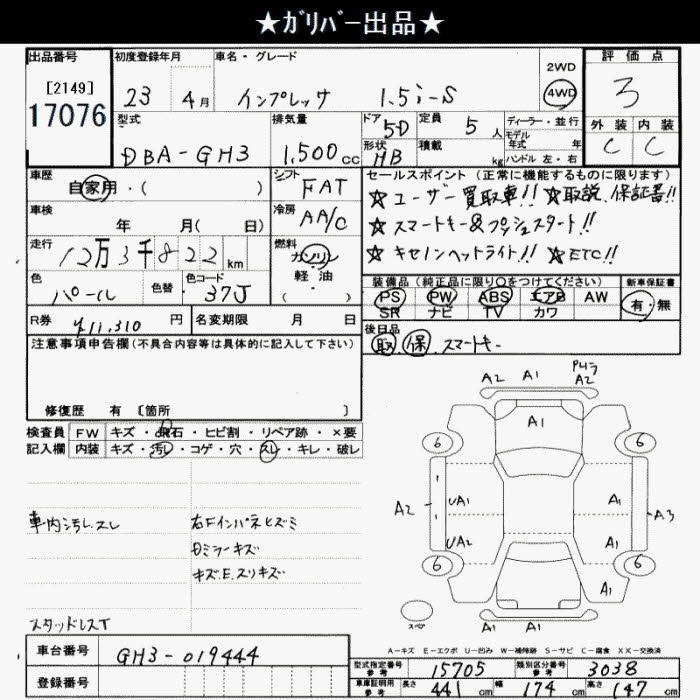 ★ｶﾞﾘﾊﾞｰ出品★
出品番号
[2149]
17076
初度登録年月
23 4月
車名・グレード
インプレッサ 1.5i-S
2WD
4WD
評価点
3
外装 内装
C C
型式
DBA-GH3
排気量
1,500cc
ドア
5D
形状
HB
定員
5人
積載
kg
ディーラー・並行
モデル年式 年
ハンドル 左・右
車歴
自家用・( )
シフト
FAT
セールスポイント (正常に機能するものに限ります)
★ユーザー買取車!! ★取説、保証書!!
★スマートキー&プッシュスタート!!
★キセノンヘットライト!! ★ETC!!
車検
年 月( 日)
冷房
AA/C
走行
12万3千822km
燃料
ガソリン
軽・油
( )
色
パール
色替
色コード
37J
装備品 (純正品に限り○をつけてください)
PS PW ABS エアB AW
SR ナビ TV カワ
新車保証書
有・無
R券 ¥11,310円
名変期限 月 日
後日品
取 保 スマートキー
注意事項申告欄(不具合内容等は具体的に記入して下さい)
修復歴 有 [箇所 ]
検査員記入欄
FW キズ・飛石・ヒビ割・リペア跡・×要
内装 キズ・汚レ・コゲ・穴・スレ・キレ・破レ
車内汚レ、スレ
スタッドレスT
右Fインパネヒズミ
Dミラーキズ
キズ.E.スリキズ
A2 A1 A2
A1
6 6
A2 UA1 A1 A3
UA2 A1
6 6
A1
A1 A1
スペア
A-キズ E-エクボ U-凹み W-補修跡 S-サビ C-腐食 XX-交換済
車台番号 GH3-019444
登録番号
型式指定番号 参考 15705
類別区分番号 参考 3038
車庫証明用 参考 長さ 441cm 幅 174cm 高さ 147cm